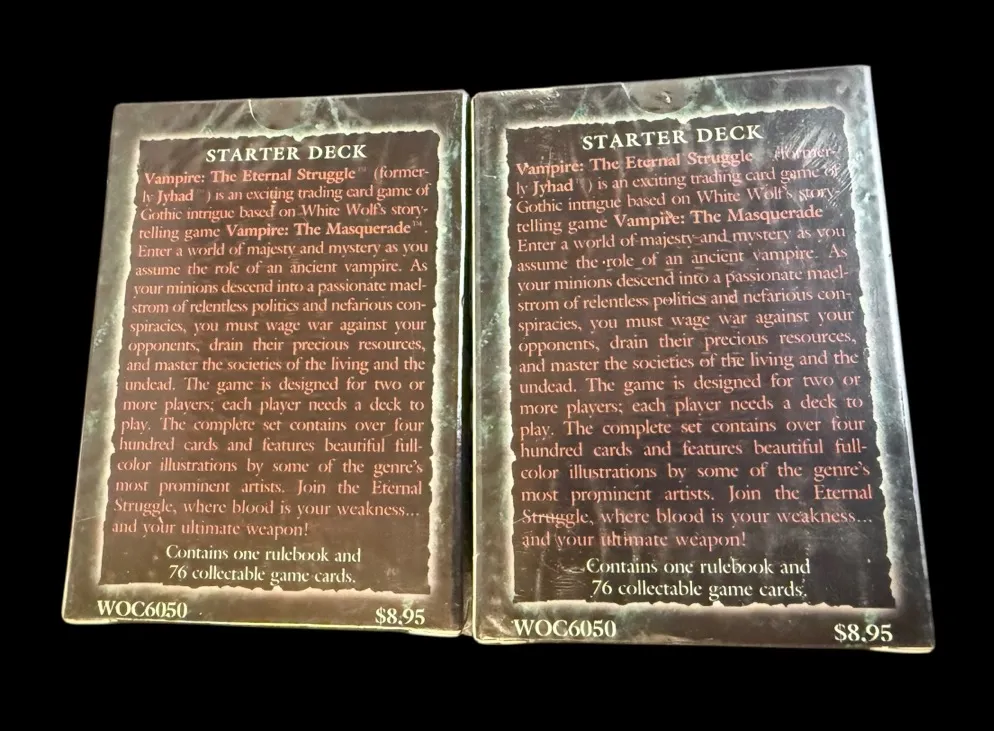 STARTER DECK
Vampire: The Eternal Struggle™ (former-
ly Jyhad™) is an exciting trading card game of
Gothic intrigue based on White Wolf's story-
telling game Vampire: The Masquerade™.
Enter a world of majesty and mystery as you
assume the role of an ancient vampire. As
your minions descend into a passionate mael-
strom of relentless politics and nefarious con-
spiracies, you must wage war against your
opponents, drain their precious resources,
and master the societies of the living and the
undead. The game is designed for two or
more players; each player needs a deck to
play. The complete set contains over four
hundred cards and features beautiful full-
color illustrations by some of the genre's
most prominent artists. Join the Eternal
Struggle, where blood is your weakness...
and your ultimate weapon!
Contains one rulebook and
76 collectable game cards.
WOC6050 $8.95
STARTER DECK
Vampire: The Eternal Struggle (former-
ly Jyhad™) is an exciting trading card game of
Gothic intrigue based on White Wolf's story-
telling game Vampire: The Masquerade
Enter a world of majesty and mystery as you
assume the role of an ancient vampire. As
your minions descend into a passionate mael-
strom of relentless politics and nefarious con-
spiracies, you must wage war against your
opponents, drain their precious resources,
and master the societies of the living and the
undead. The game is designed for two or
more players; each player needs a deck to
play. The complete set contains over four
hundred cards and features beautiful full-
color illustrations by some of the genre's
most prominent artists. Join the Eternal
Struggle, where blood is your weakness...
and your ultimate weapon!
Contains one rulebook and
76 collectable game cards.
WOC6050 $8.95